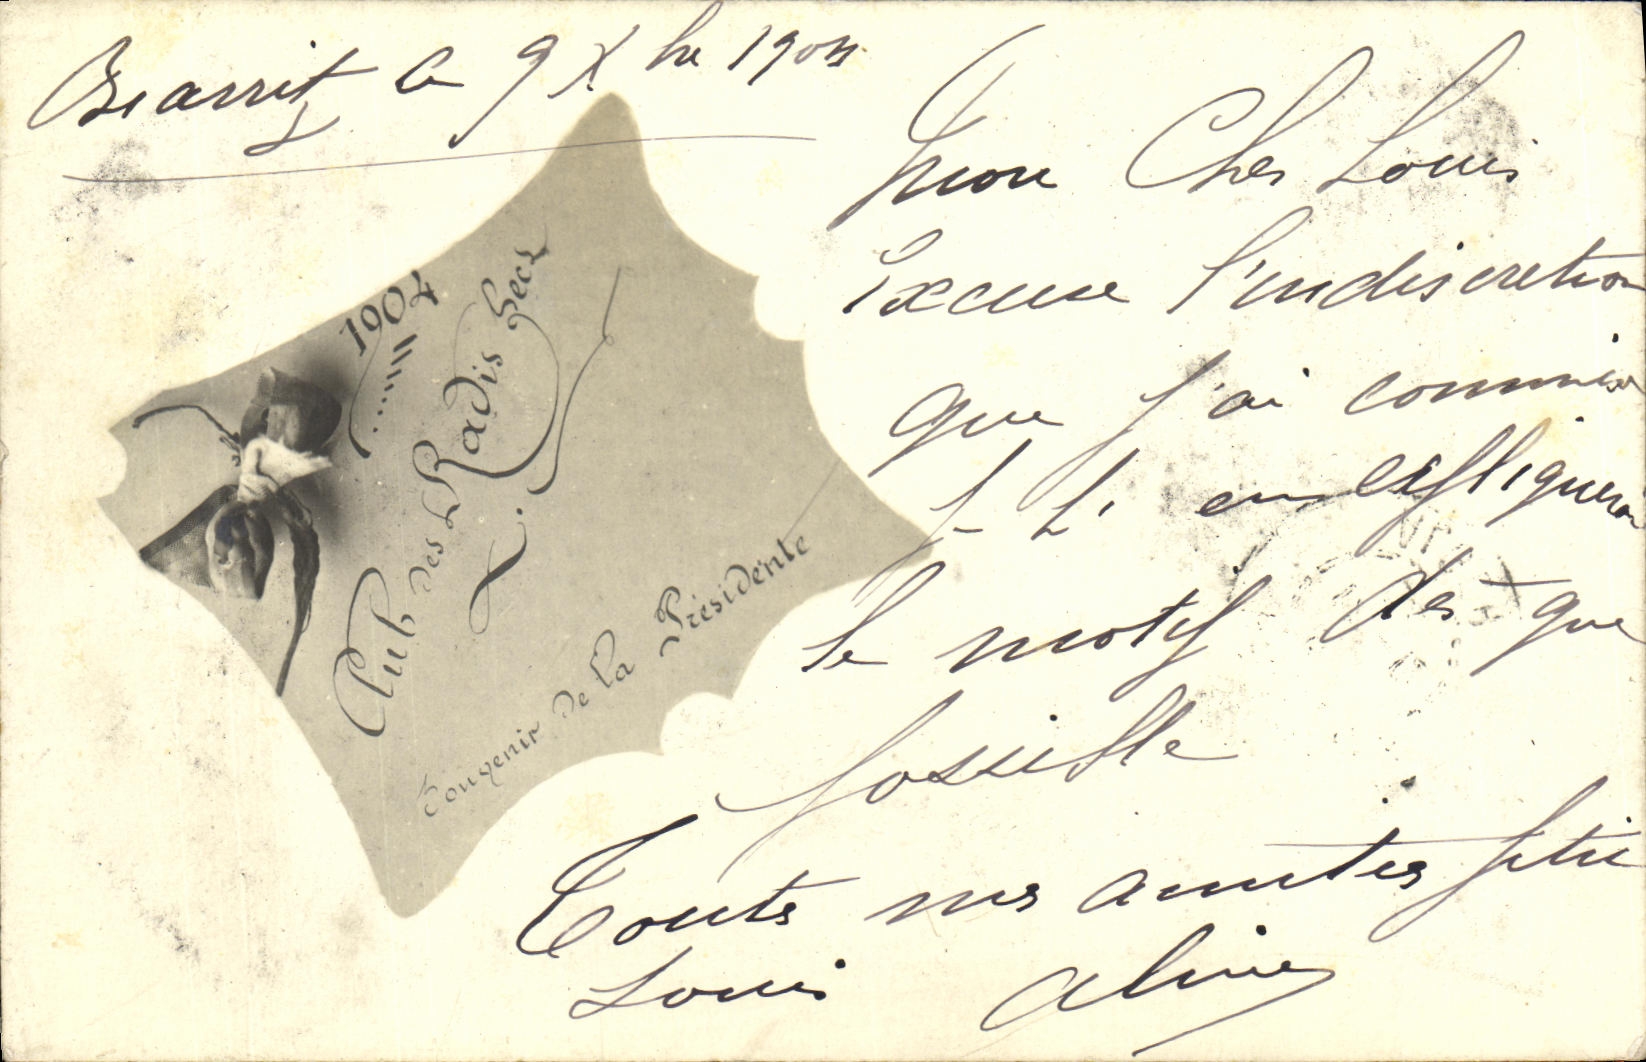 Biarritz le 9 Xbre 1904
Mon Cher Louis
Excuse l'indiscretion
que j'ai commise
J t'en expliquerai
le motif des que
possible
Toutes mes amities petit
Louis Aline
1904
Club des Radis Secs
X.
Souvenir de la Présidente